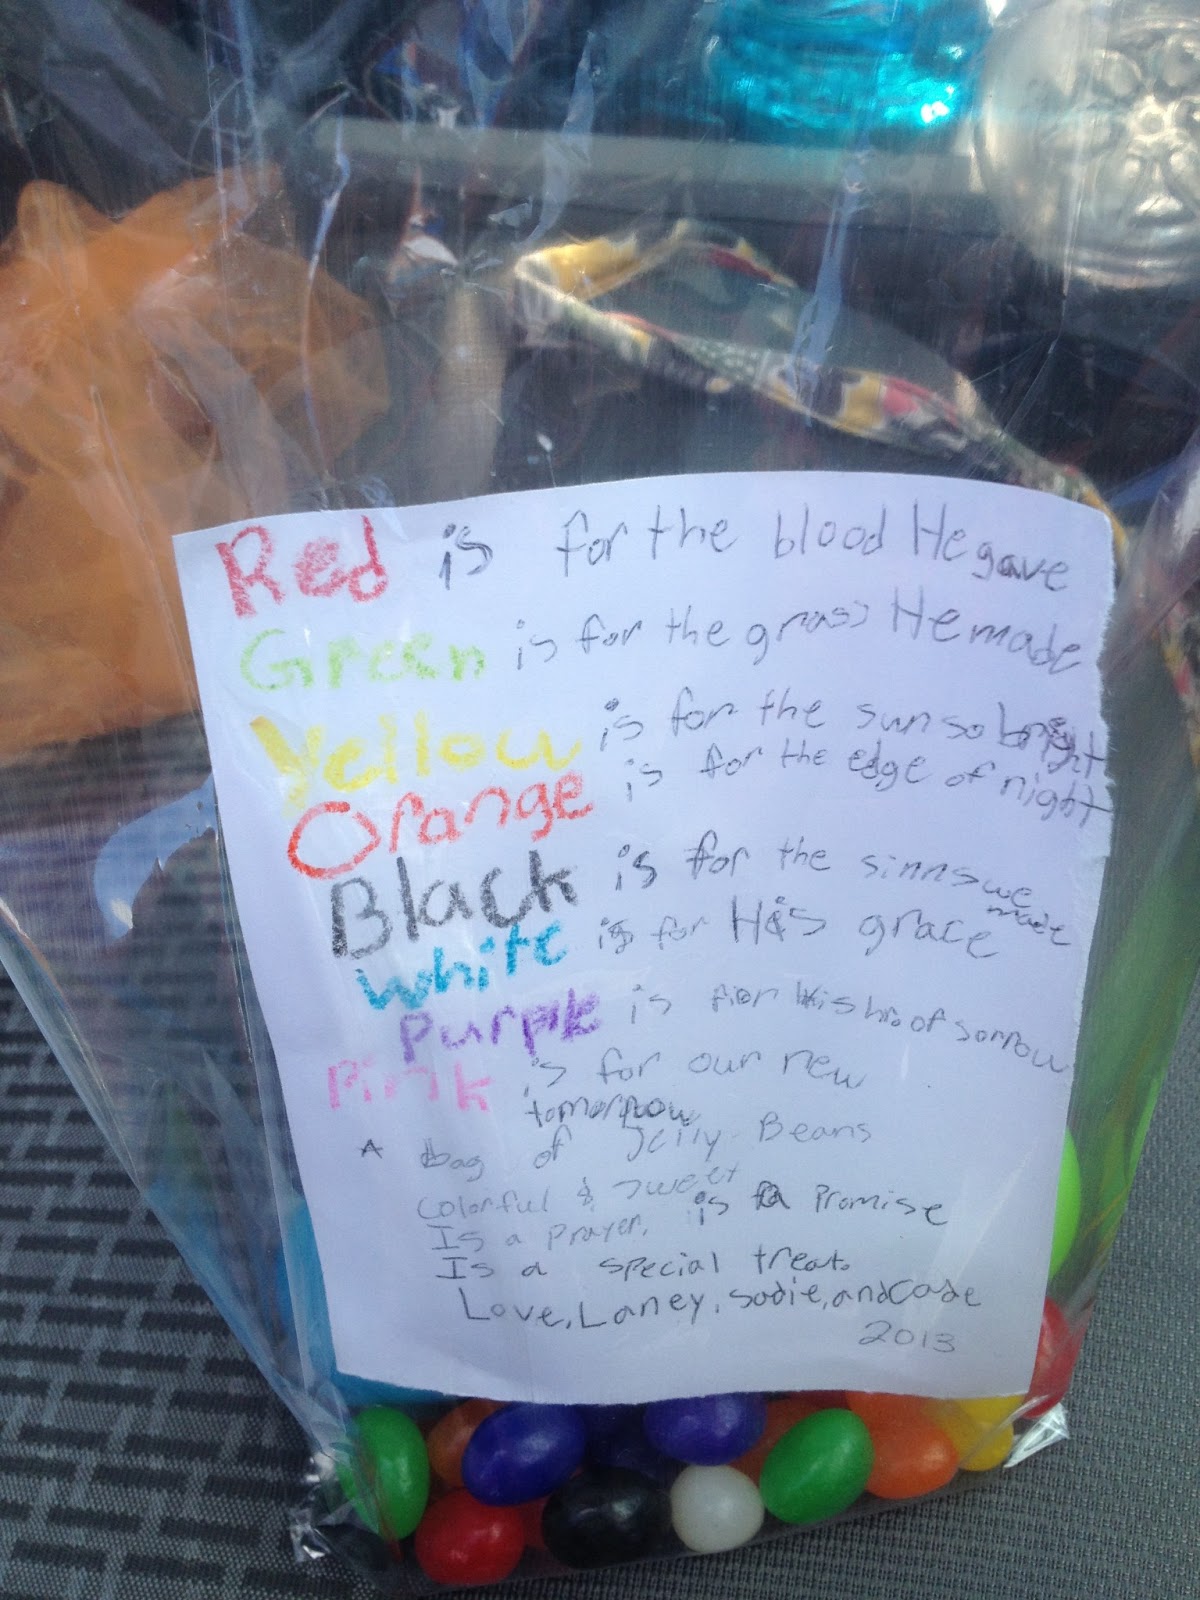 Red is for the blood He gave
Green is for the grass He made
Yellow is for the sun so bright
Orange is for the edge of night
Black is for the sinns we made
white is for His grace
Purple is for of sorrow
Pink is for our new
tomorrow
A bag of Jelly Beans
colorful & sweet
Is a prayer, is a Promise
Is a special treat.
Love, Laney, Sadie, and Cade
2013